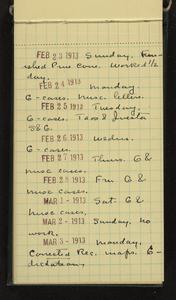 FEB 23 1913 Sunday. Fin-
ished Pine Cone. Worked 1/2
day.
FEB 24 1913 Monday
6 - cases. misc. letters.
FEB 25 1913 Tuesday,
6 - cases. Taos &
S&G.
FEB 26 1913 Wednes.
6 - cases.
FEB 27 1913 Thurs. 6 &
misc cases,
FEB 28 1913 Fri 6 &
misc cases.
MAR 1 - 1913 Sat. 6 &
misc cases,
MAR 2 - 1913 Sunday. no
work.
MAR 3 - 1913 Monday,
Corrected Rec. maps. 6 -
dictation,